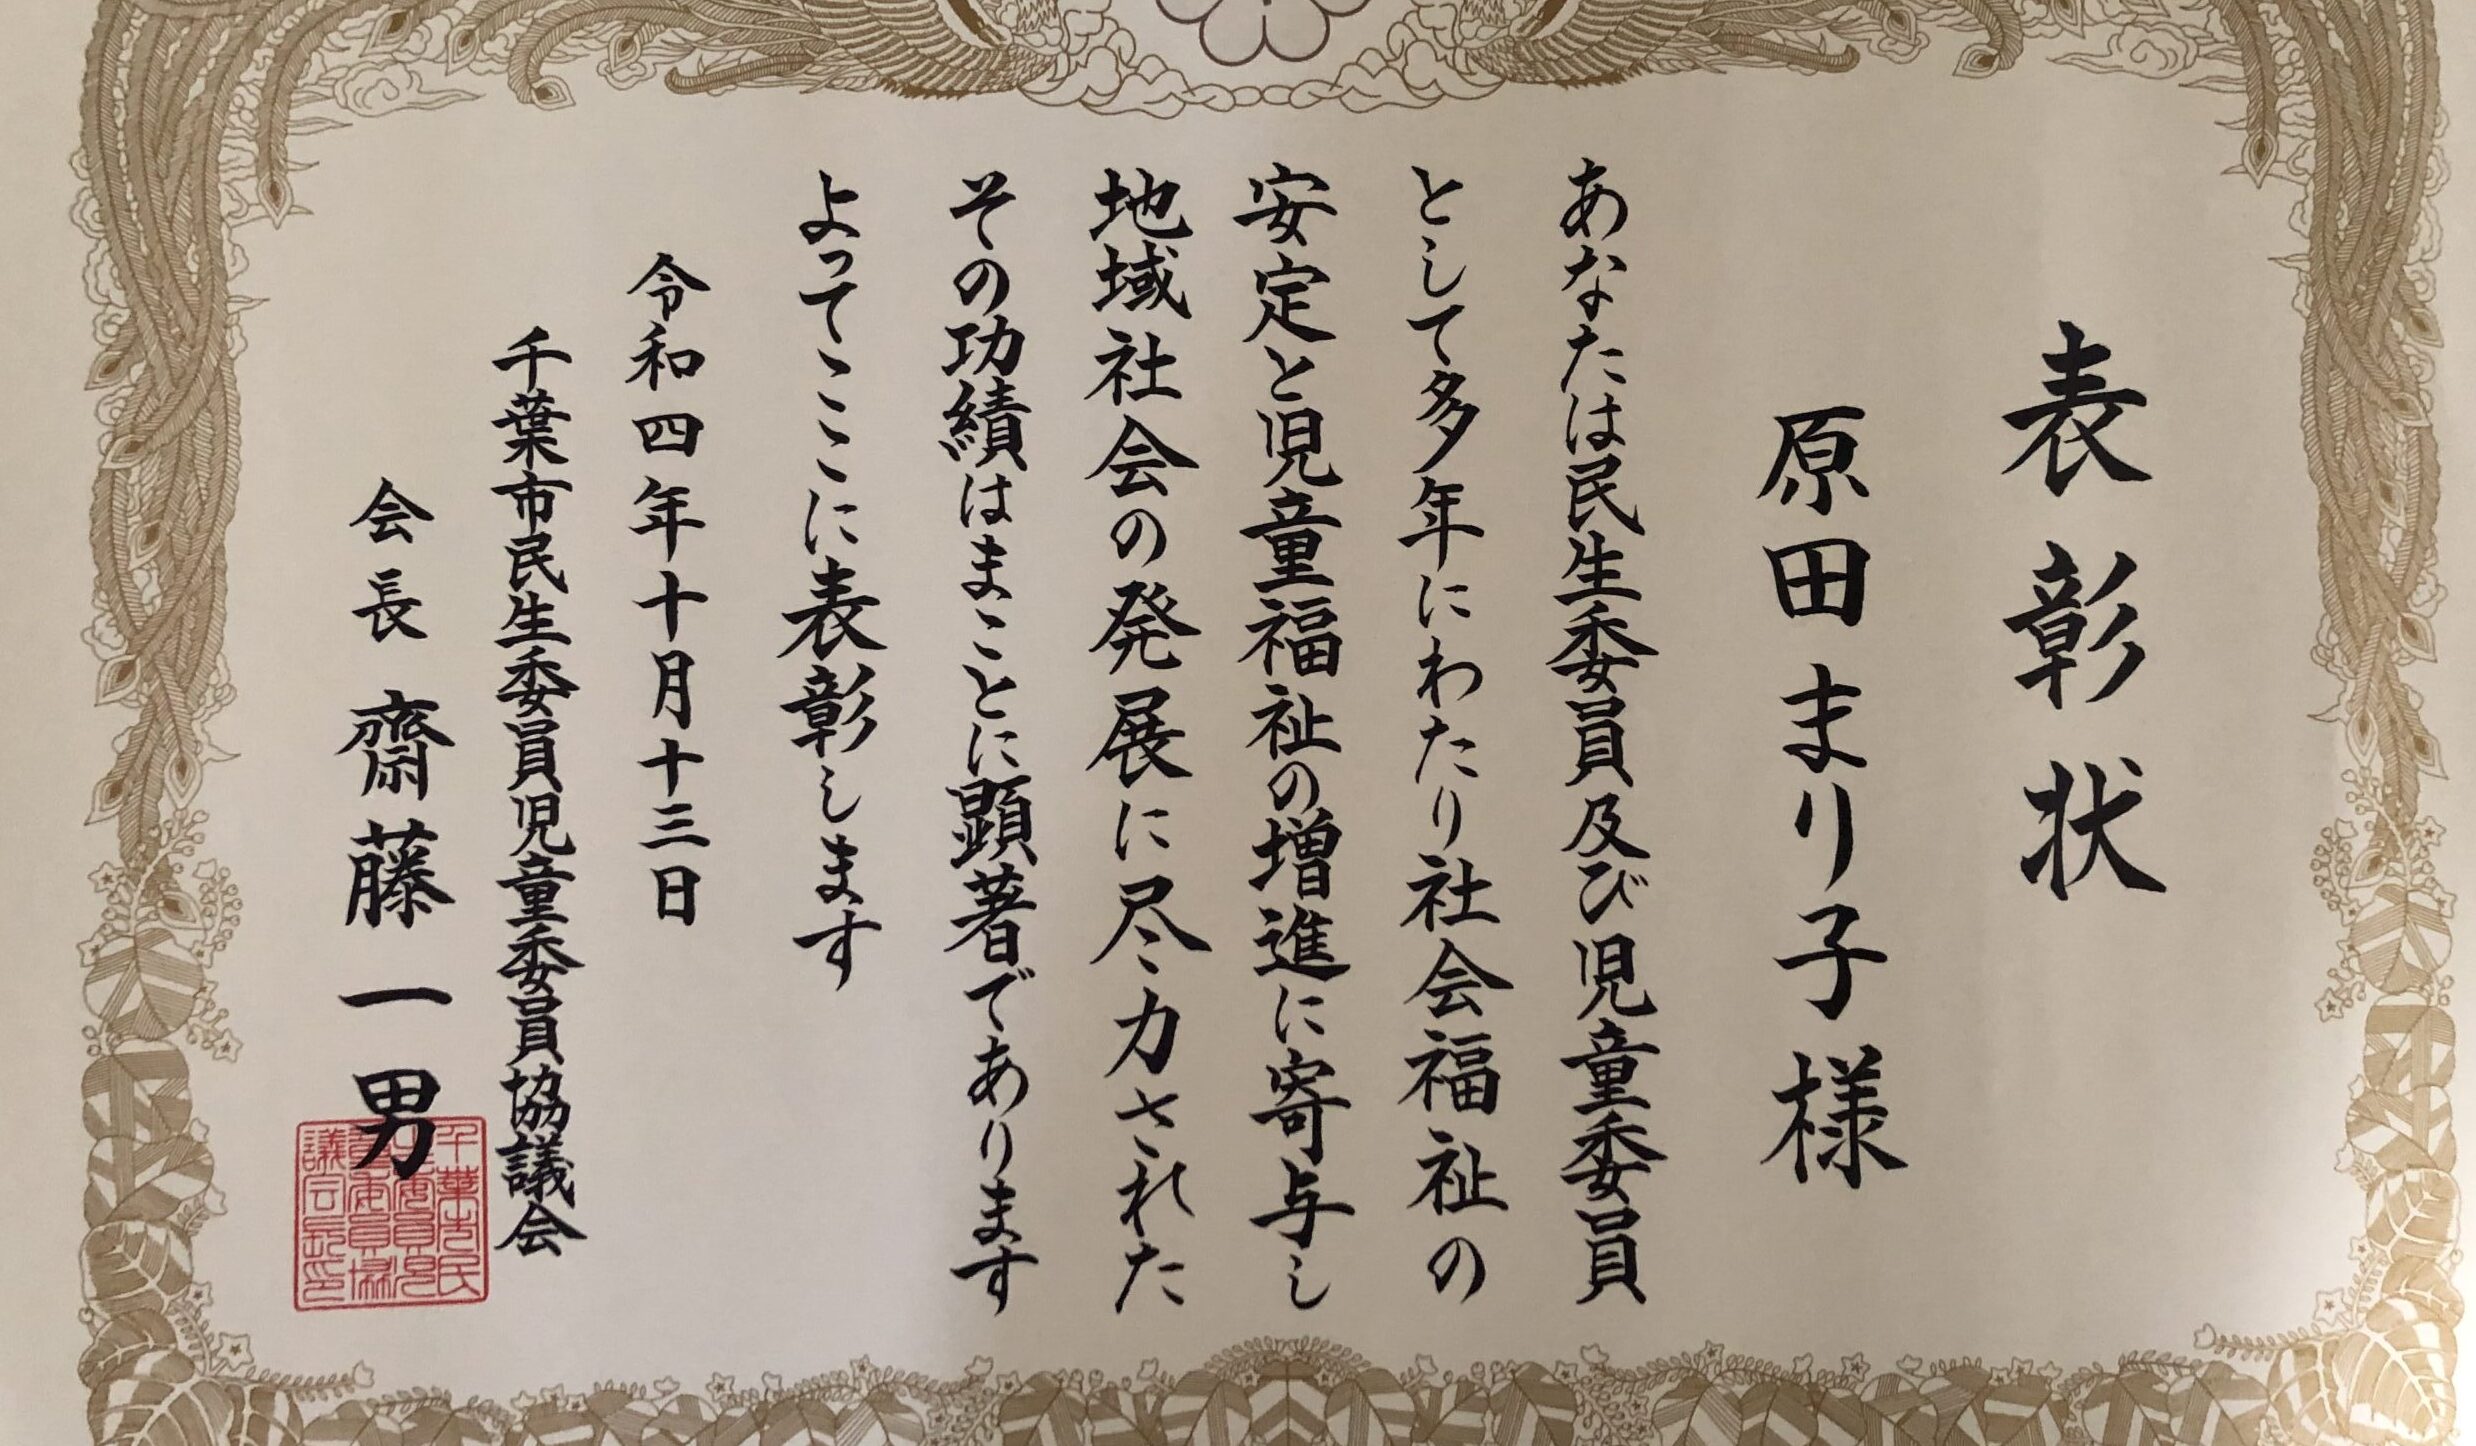 表彰状
原田まり子様
あなたは民生委員及び児童委員
として多年にわたり社会福祉の
安定と児童福祉の増進に寄与し
地域社会の発展に尽力された
その功績はまことに顕著であります
よってここに表彰します
令和四年十月十三日
千葉市民生委員児童委員協議会
会長 齋藤一男
千葉市民
生委員児
童委員協
議会長印